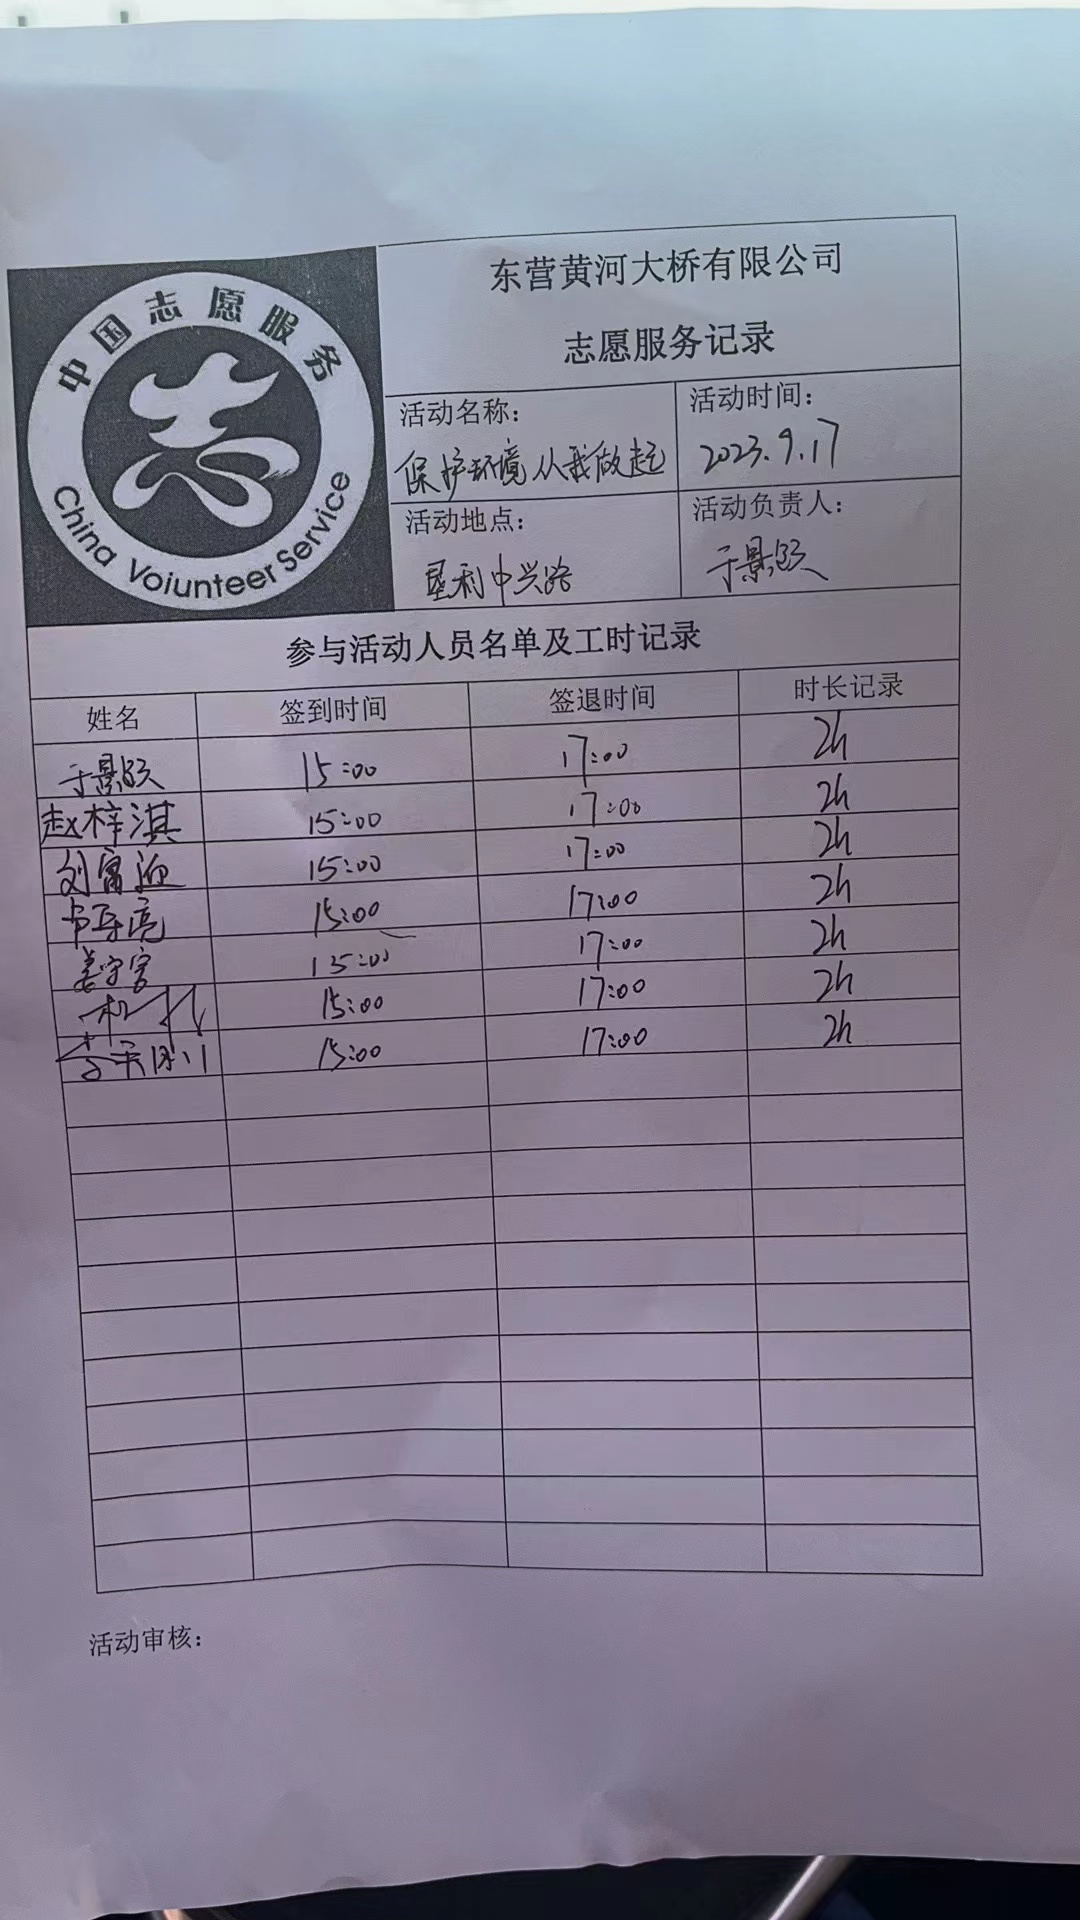 中国志愿服务
China Voiunteer Service
东营黄河大桥有限公司
志愿服务记录
活动名称：
保护环境从我做起
活动时间：
2023.9.17
活动地点：
垦利中兴路
活动负责人：
于景
参与活动人员名单及工时记录
姓名 签到时间 签退时间 时长记录
于景 15:00 17:00 2h
赵梓淇 15:00 17:00 2h
刘富迎 15:00 17:00 2h
15:00 17:00 2h
姜守宫 15:00 17:00 2h
15:00 17:00 2h
李 15:00 17:00 2h
活动审核：